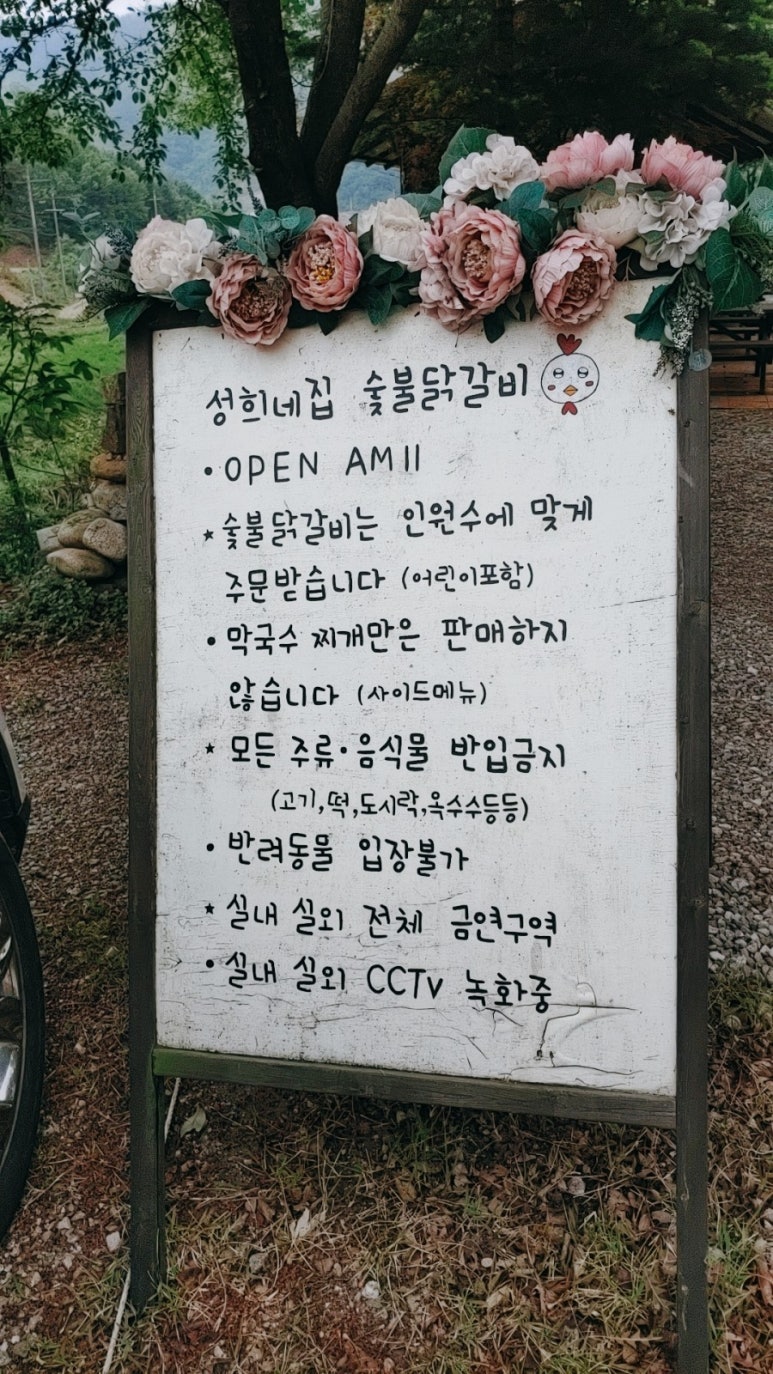 성희네집 숯불닭갈비
• OPEN AM11
★ 숯불닭갈비는 인원수에 맞게
주문받습니다 (어린이포함)
• 막국수 찌개만은 판매하지
않습니다 (사이드메뉴)
★ 모든 주류·음식물 반입금지
(고기,떡,도시락,옥수수등등)
• 반려동물 입장불가
★ 실내 실외 전체 금연구역
• 실내 실외 CCTV 녹화중